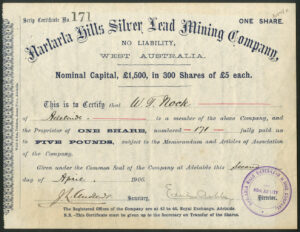 Scrip Certificate No. 171
ONE SHARE.
Narlarla Hills Silver Lead Mining Company,
NO LIABILITY,
WEST AUSTRALIA.
Nominal Capital, £1,500, in 300 Shares of £5 each.
This is to Certify that W. T. Nock
of Adelaide is a member of the above Company, and
the Proprietor of ONE SHARE, numbered 171 fully paid up
to FIVE POUNDS, subject to the Memorandum and Articles of Association
of the Company.
Given under the Common Seal of the Company at Adelaide this Second
day of April 1906.
Secretary.
Director.
The Registered Offices of the Company are at 42 to 46, Royal Exchange, Adelaide
N.B.—This Certificate must be given up to the Secretary on Transfer of the Shares.